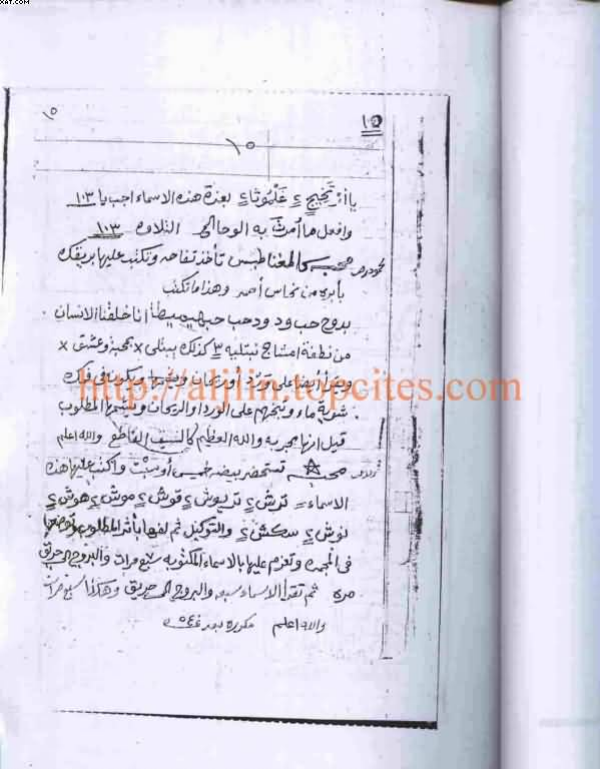 xat.com
١٥
١٥
١٥
يا أزتخيج ٢ غلموثا ٢ بعزة هذه الاسماء اجب يا ١٠٣
وافعل ما أمرت به الوحا الخ التلاوه ١٠٣
كالمغناطيس تأخذ تفاحه وتكتب عليها بريقك
بأبره من نحاس أحمر وهذا ما تكتب
بدوح حب ود ود حب حبهيميطة انا خلقنا الانسان
من نطفة امشاج نبتليه ٣ كذلك يبتلى x بمحبة وعشق x
وتقرأ أيضا على ورد أو ريحان ويكون فى فمك
شوية ماء وتبخهم على الورد او الريحان ويشمها المطلوب
قيل انها مجربه والله العظيم كالسيف القاطع والله اعلم
تستحضر بيضه خميس أو سبت واكتب عليها هذه
الاسماء ترش ٢ تريوش ٢ قوش ٢ موش ٢ هوش ٢
لوش ٢ سكش ٢ والتوكيل ثم لفها بأثر المطلوب
فى المجمره وتعزم عليها بالاسماء المكتوبه سبع مرات والبروج الى حريق
مره ثم تقرأ الاسماء سبعه والبروج الى حريق وهكذا سبع مرات
والله اعلم مكرره
http://aljiin.topcites.com